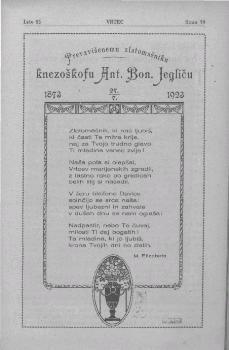 Leto 53 VRTEC Štev. 7/8
Prevzvišenemu zlatomašniku
knezoškofu Ant. Bon. Jegliču
1873 27. 7. 1923
Zlatomašnik, ki nas ljubiš,
ki časti Te mitra krije,
naj za Tvojo trudno glavo
Ti mladina venec zvije!
Naša pota si olepšal,
Vrtcev marijanskih zgradil,
z lastno roko po gredicah
belih lilij si nasadil.
V žaru milošče Davice
solnčijo se srca naša:
spev ljubezni in zahvale
v dušah dnu se nam oglaša:
Nadpastir, nebo Te čuvaj,
milosti Ti daj bogatih!
Ta mladina, ki jo ljubiš,
krona Tvojih dni bo zlatih.
M. Elizabeta